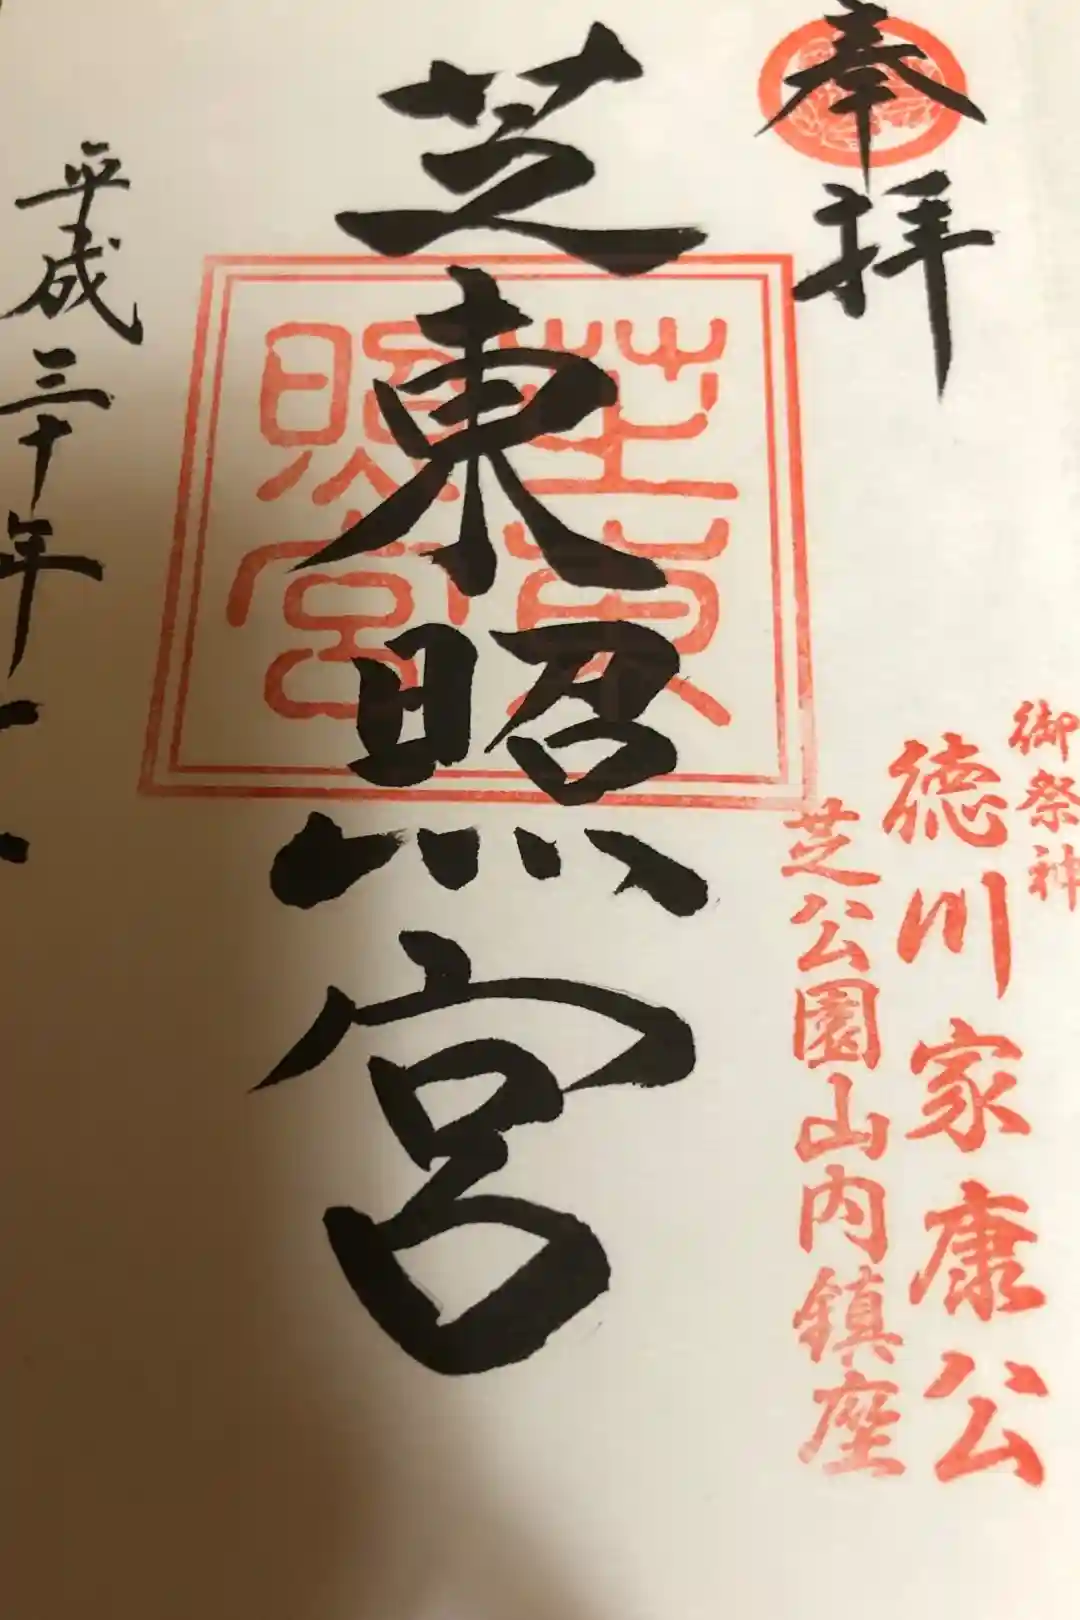 奉拝
御祭神
徳川家康公
芝公園山内鎮座
芝東照宮
芝東
照宮
平成三十年